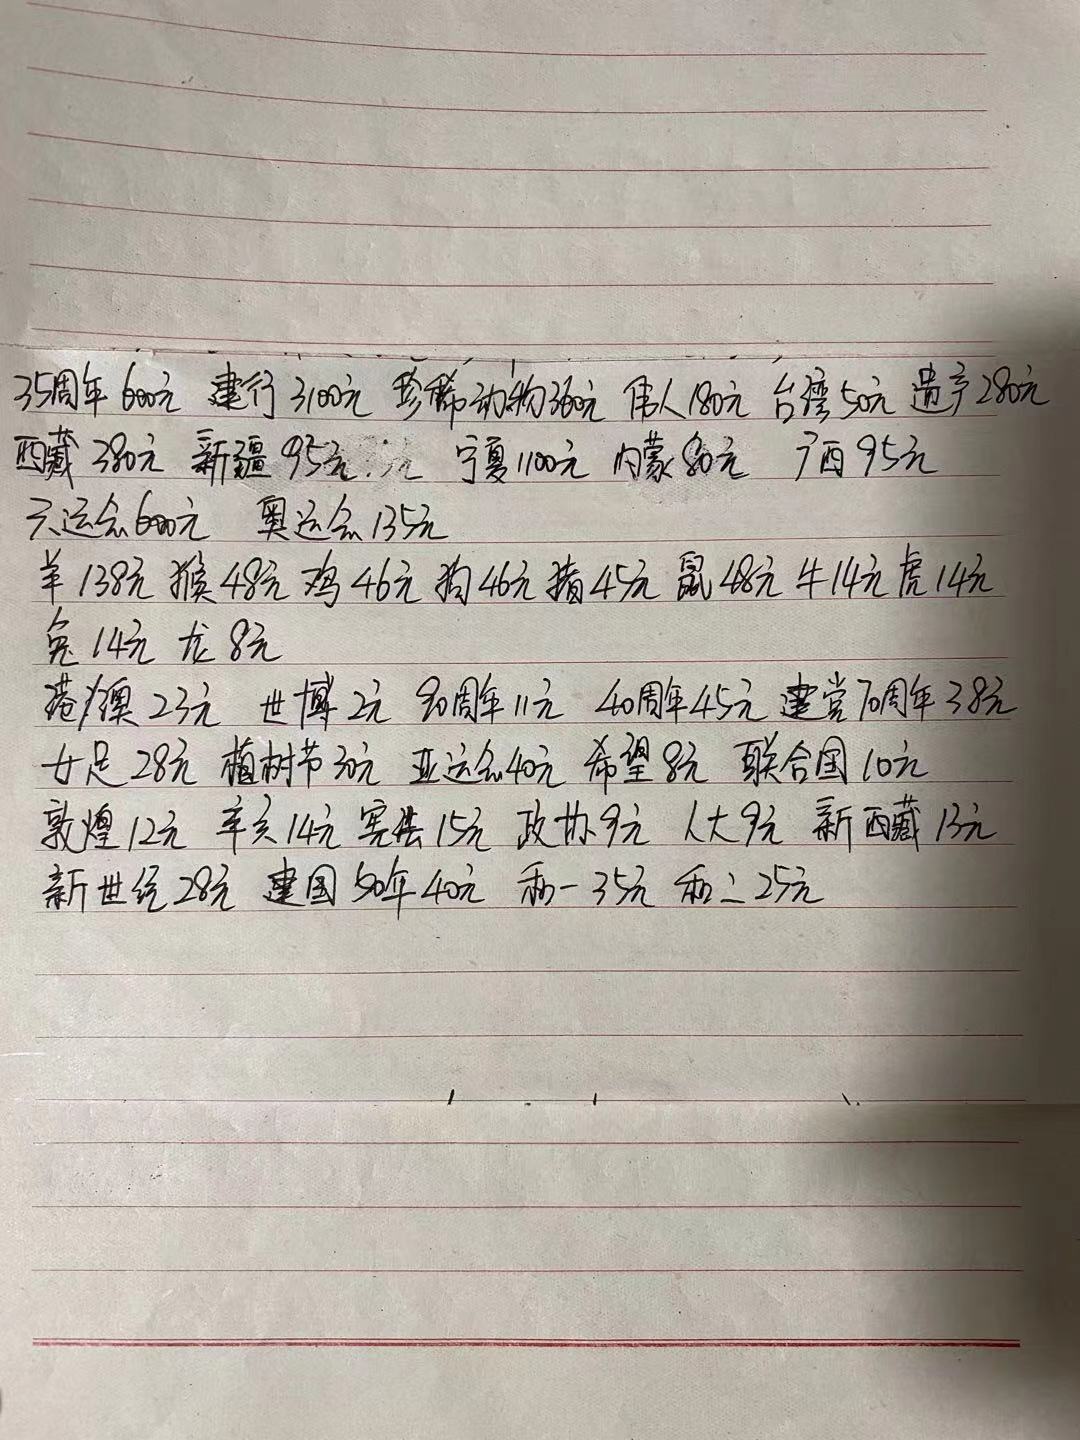 35周年600元 建行3100元 珍稀动物360元 伟人180元 台湾50元 遗产280元
西藏380元 新疆95元 宁夏1100元 内蒙80元 广西95元
六运会600元 奥运会135元
羊138元 猴48元 鸡46元 狗46元 猪45元 鼠48元 牛14元 虎14元
兔14元 龙8元
港/澳23元 世博2元 90周年11元 40周年45元 建党70周年38元
女足28元 植树节30元 亚运会40元 希望8元 联合国10元
敦煌12元 辛亥14元 宪法15元 政协9元 人大9元 新西藏13元
新世纪28元 建国50年40元 和一35元 和二25元